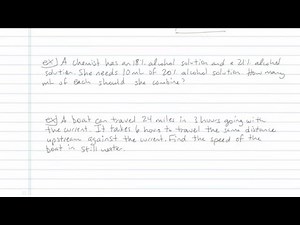 ex) A chemist has an 18% alcohol solution and a 21% alcohol
solution. She needs 10 mL of 20% alcohol solution. How many
mL of each should she combine?
ex) A boat can travel 24 miles in 3 hours going with
the current. It takes 6 hours to travel the same distance
upstream against the current. Find the speed of the
boat in still water.